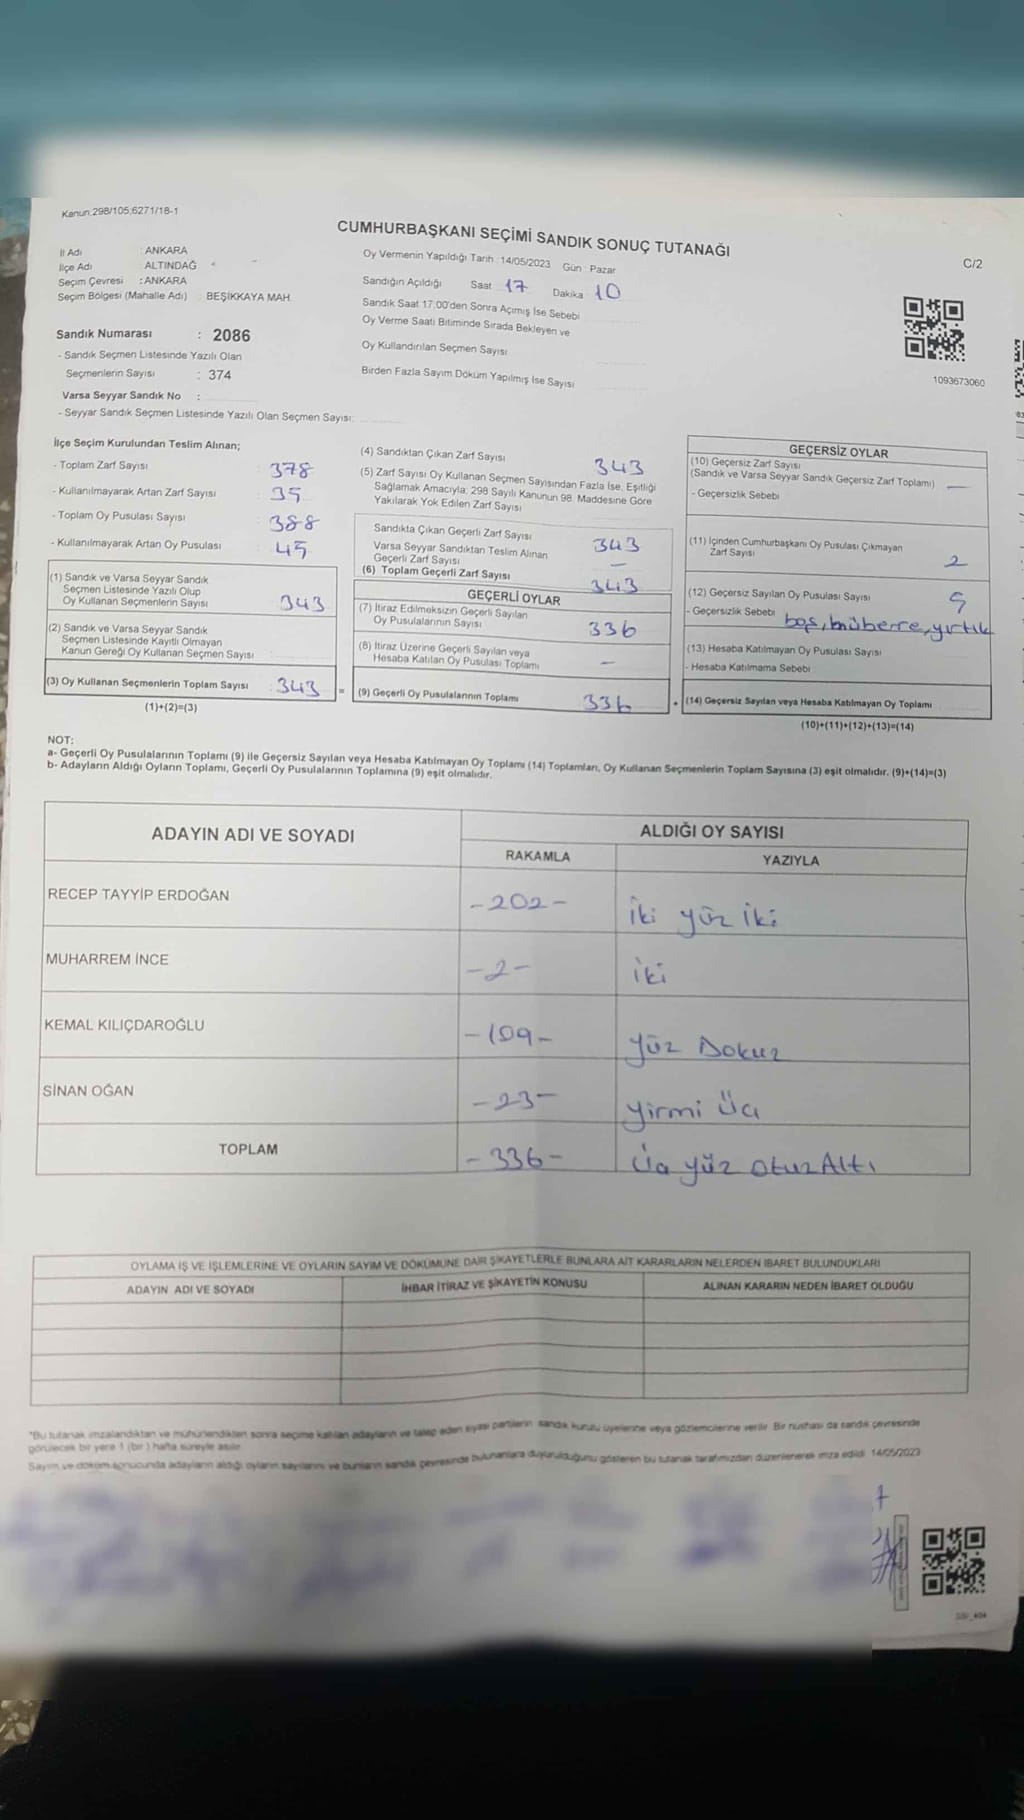 Kanun:298/105;6271/18-1
CUMHURBAŞKANI SEÇİMİ SANDIK SONUÇ TUTANAĞI
C/2
İl Adı : ANKARA
İlçe Adı : ALTINDAĞ
Seçim Çevresi : ANKARA
Seçim Bölgesi (Mahalle Adı) : BEŞİKKAYA MAH.
Oy Vermenin Yapıldığı Tarih : 14/05/2023 Gün : Pazar
Sandığın Açıldığı Saat 17 Dakika 10
Sandık Saat 17:00'den Sonra Açımış İse Sebebi
Oy Verme Saati Bitiminde Sırada Bekleyen ve
Oy Kullandırılan Seçmen Sayısı
Birden Fazla Sayım Döküm Yapılmış İse Sayısı
1093673060
Sandık Numarası : 2086
- Sandık Seçmen Listesinde Yazılı Olan
Seçmenlerin Sayısı : 374
Varsa Seyyar Sandık No :
- Seyyar Sandık Seçmen Listesinde Yazılı Olan Seçmen Sayısı:
İlçe Seçim Kurulundan Teslim Alınan;
- Toplam Zarf Sayısı : 378
- Kullanılmayarak Artan Zarf Sayısı : 35
- Toplam Oy Pusulası Sayısı : 388
- Kullanılmayarak Artan Oy Pusulası : 45
(1) Sandık ve Varsa Seyyar Sandık
Seçmen Listesinde Yazılı Olup
Oy Kullanan Seçmenlerin Sayısı : 343
(2) Sandık ve Varsa Seyyar Sandık
Seçmen Listesinde Kayıtlı Olmayan
Kanun Gereği Oy Kullanan Seçmen Sayısı :
(3) Oy Kullanan Seçmenlerin Toplam Sayısı : 343 =
(1)+(2)=(3)
(4) Sandıktan Çıkan Zarf Sayısı 343
(5) Zarf Sayısı Oy Kullanan Seçmen Sayısından Fazla İse, Eşitliği
Sağlamak Amacıyla; 298 Sayılı Kanunun 98. Maddesine Göre
Yakılarak Yok Edilen Zarf Sayısı
Sandıkta Çıkan Geçerli Zarf Sayısı 343
Varsa Seyyar Sandıktan Teslim Alınan
Geçerli Zarf Sayısı —
(6) Toplam Geçerli Zarf Sayısı 343
GEÇERLİ OYLAR
(7) İtiraz Edilmeksizin Geçerli Sayılan
Oy Pusulalarının Sayısı 336
(8) İtiraz Üzerine Geçerli Sayılan veya
Hesaba Katılan Oy Pusulası Toplamı —
(9) Geçerli Oy Pusulalarının Toplamı 336 +
GEÇERSİZ OYLAR
(10) Geçersiz Zarf Sayısı
(Sandık ve Varsa Seyyar Sandık Geçersiz Zarf Toplamı) —
- Geçersizlik Sebebi
(11) İçinden Cumhurbaşkanı Oy Pusulası Çıkmayan
Zarf Sayısı 2
(12) Geçersiz Sayılan Oy Pusulası Sayısı
- Geçersizlik Sebebi boş, yırtık
(13) Hesaba Katılmayan Oy Pusulası Sayısı
- Hesaba Katılmama Sebebi
(14) Geçersiz Sayılan veya Hesaba Katılmayan Oy Toplamı
(10)+(11)+(12)+(13)=(14)
NOT:
a- Geçerli Oy Pusulalarının Toplamı (9) ile Geçersiz Sayılan veya Hesaba Katılmayan Oy Toplamı (14) Toplamları, Oy Kullanan Seçmenlerin Toplam Sayısına (3) eşit olmalıdır. (9)+(14)=(3)
b- Adayların Aldığı Oyların Toplamı, Geçerli Oy Pusulalarının Toplamına (9) eşit olmalıdır.
ADAYIN ADI VE SOYADI ALDIĞI OY SAYISI
RAKAMLA YAZIYLA
RECEP TAYYİP ERDOĞAN -202- İki yüz İki
MUHARREM İNCE -2- İki
KEMAL KILIÇDAROĞLU -109- Yüz Dokuz
SİNAN OĞAN -23- Yirmi Üç
TOPLAM -336- Üç yüz Otuz Altı
OYLAMA İŞ VE İŞLEMLERİNE VE OYLARIN SAYIM VE DÖKÜMÜNE DAİR ŞİKAYETLERLE BUNLARA AİT KARARLARIN NELERDEN İBARET BULUNDUKLARI
ADAYIN ADI VE SOYADI İHBAR İTİRAZ VE ŞİKAYETİN KONUSU ALINAN KARARIN NEDEN İBARET OLDUĞU
"Bu tutanak imzalandıktan ve mühürlendikten sonra seçime katılan adayların ve talep eden siyasi partilerin sandık kurulu üyelerine veya gözlemcilerine verilir. Bir nüshası da sandık çevresinde
görülecek bir yere 1 (bir) hafta süreyle asılır.
Sayım ve döküm sonucunda adayların aldığı oyların sayılarını ve bunların sandık çevresinde bulunanlara duyurulduğunu gösteren bu tutanak tarafımızdan düzenlenerek imza edildi. 14/05/2023